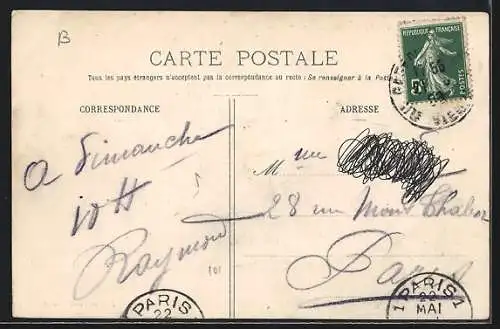 B
CARTE POSTALE
Tous les pays étrangers n'acceptent pas la correspondance au recto : Se renseigner à la Poste
CORRESPONDANCE
ADRESSE
RÉPUBLIQUE FRANÇAISE
POSTES
A Dimanche
10 H
Raymond
101
Mme
28 rue Mont Thabor
Paris
PARIS
22
1 PARIS 1
22
MAI